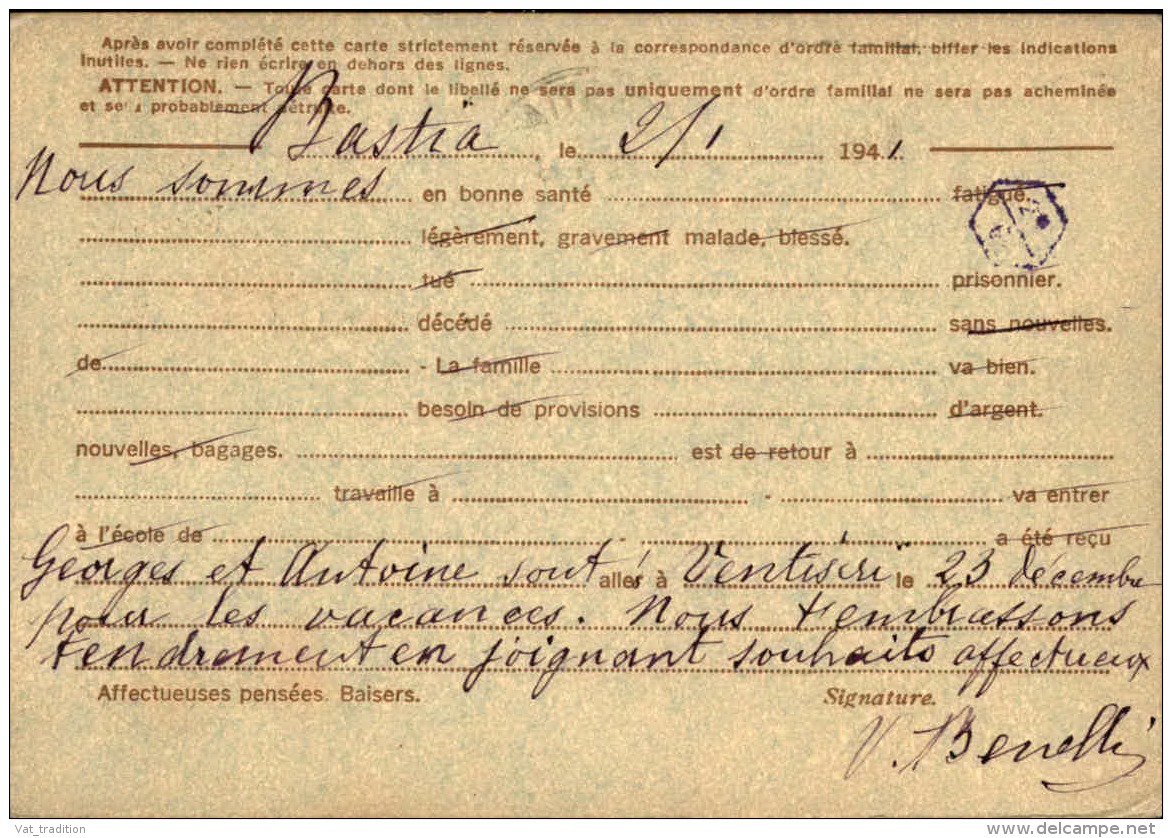 Après avoir complété cette carte strictement réservée à la correspondance d'ordre familial, biffer les indications
inutiles. — Ne rien écrire en dehors des lignes.
ATTENTION. — Toute carte dont le libellé ne sera pas uniquement d'ordre familial ne sera pas acheminée
et sera probablement détruite.
Bastia, le 2/1 1941.
Nous sommes en bonne santé fatigué.
légèrement, gravement malade, blessé.
tué prisonnier.
décédé sans nouvelles.
de - La famille va bien.
besoin de provisions d'argent.
nouvelles, bagages. est de retour à
travaille à - va entrer
à l'école de - a été reçu
Georges et Antoine sont allés à Ventiseri le 23 décembre
pour les vacances. Nous t'embrassons
tendrement en joignant souhaits affectueux
Affectueuses pensées. Baisers. Signature.
V. Benelli
Vat_tradition
delcampe.net